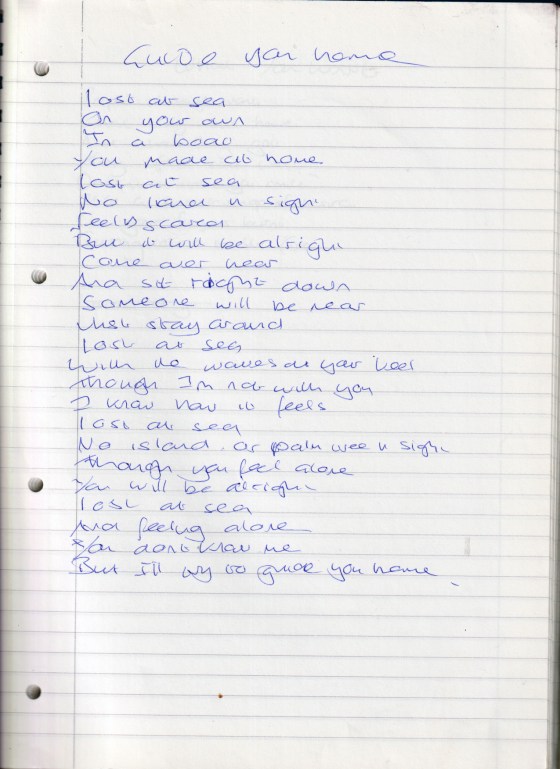 Guide you home
Lost at sea
On your own
In a boat
You made at home
Lost at sea
No land n sight
Feeling scared
But it will be alright
Come over near
And sit right down
Someone will be near
Just stay around
Lost at sea
With the waves at your heel
Though I'm not with you
I know how it feels
Lost at sea
No island or palm tree n sight
Though you feel alone
You will be alright
Lost at sea
And feeling alone
You dont know me
But I'll try to guide you home